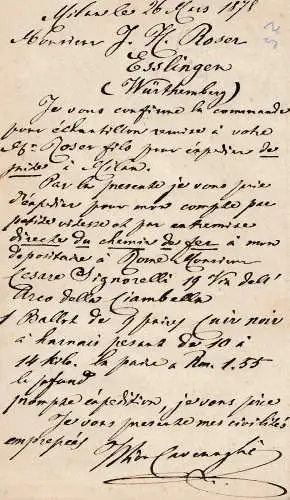 Milan les 26 Mars 1878
Monsieur J. H. Roser
Esslingen
(Würthemberg)
Je vous confirme la commande
pour échantillon remise à votre
Sr. Roser fils pour expedier de
suite à Milan.
Par la presente je vous prie
d'expedier pour mon compte par
petite vitesse et par entremise
directe du chemin de fer à mon
depositaire à Rome Monsieur
Cesare Signorelli 19 Via dell'
Arco della Ciambella
1 Ballot de 9 paires Cuir noir
à harnais pesant de 10 à
14 kilo. la paire a Rm. 1.55
le
prompte expedition, je vous prie
Je vous presente mes civilités
empressés
Cavenaghi